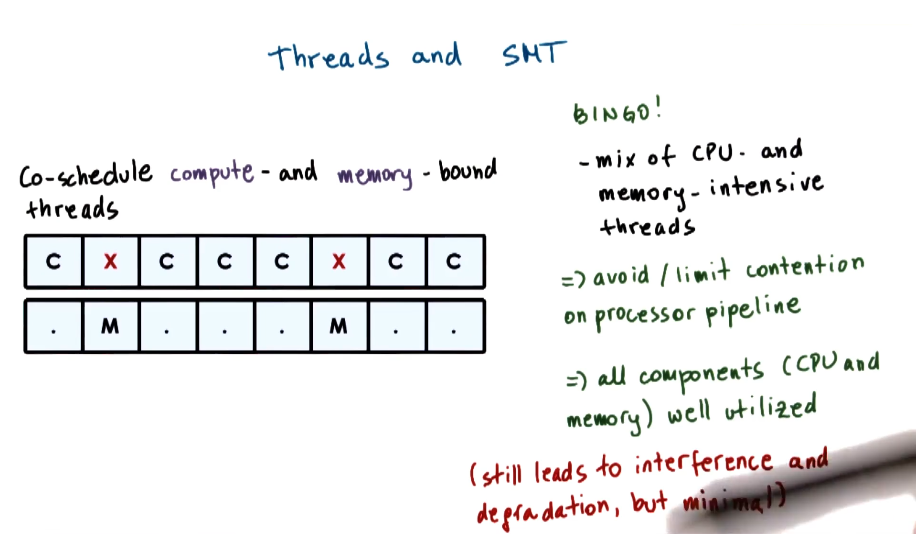 Threads and SMT
Co-schedule compute- and memory-bound
threads
C X C C C X C C
. M . . . M . .
BINGO!
- mix of CPU- and
memory-intensive
threads
=> avoid / limit contention
on processor pipeline
=> all components (CPU and
memory) well utilized
(still leads to interference and
degradation, but minimal)